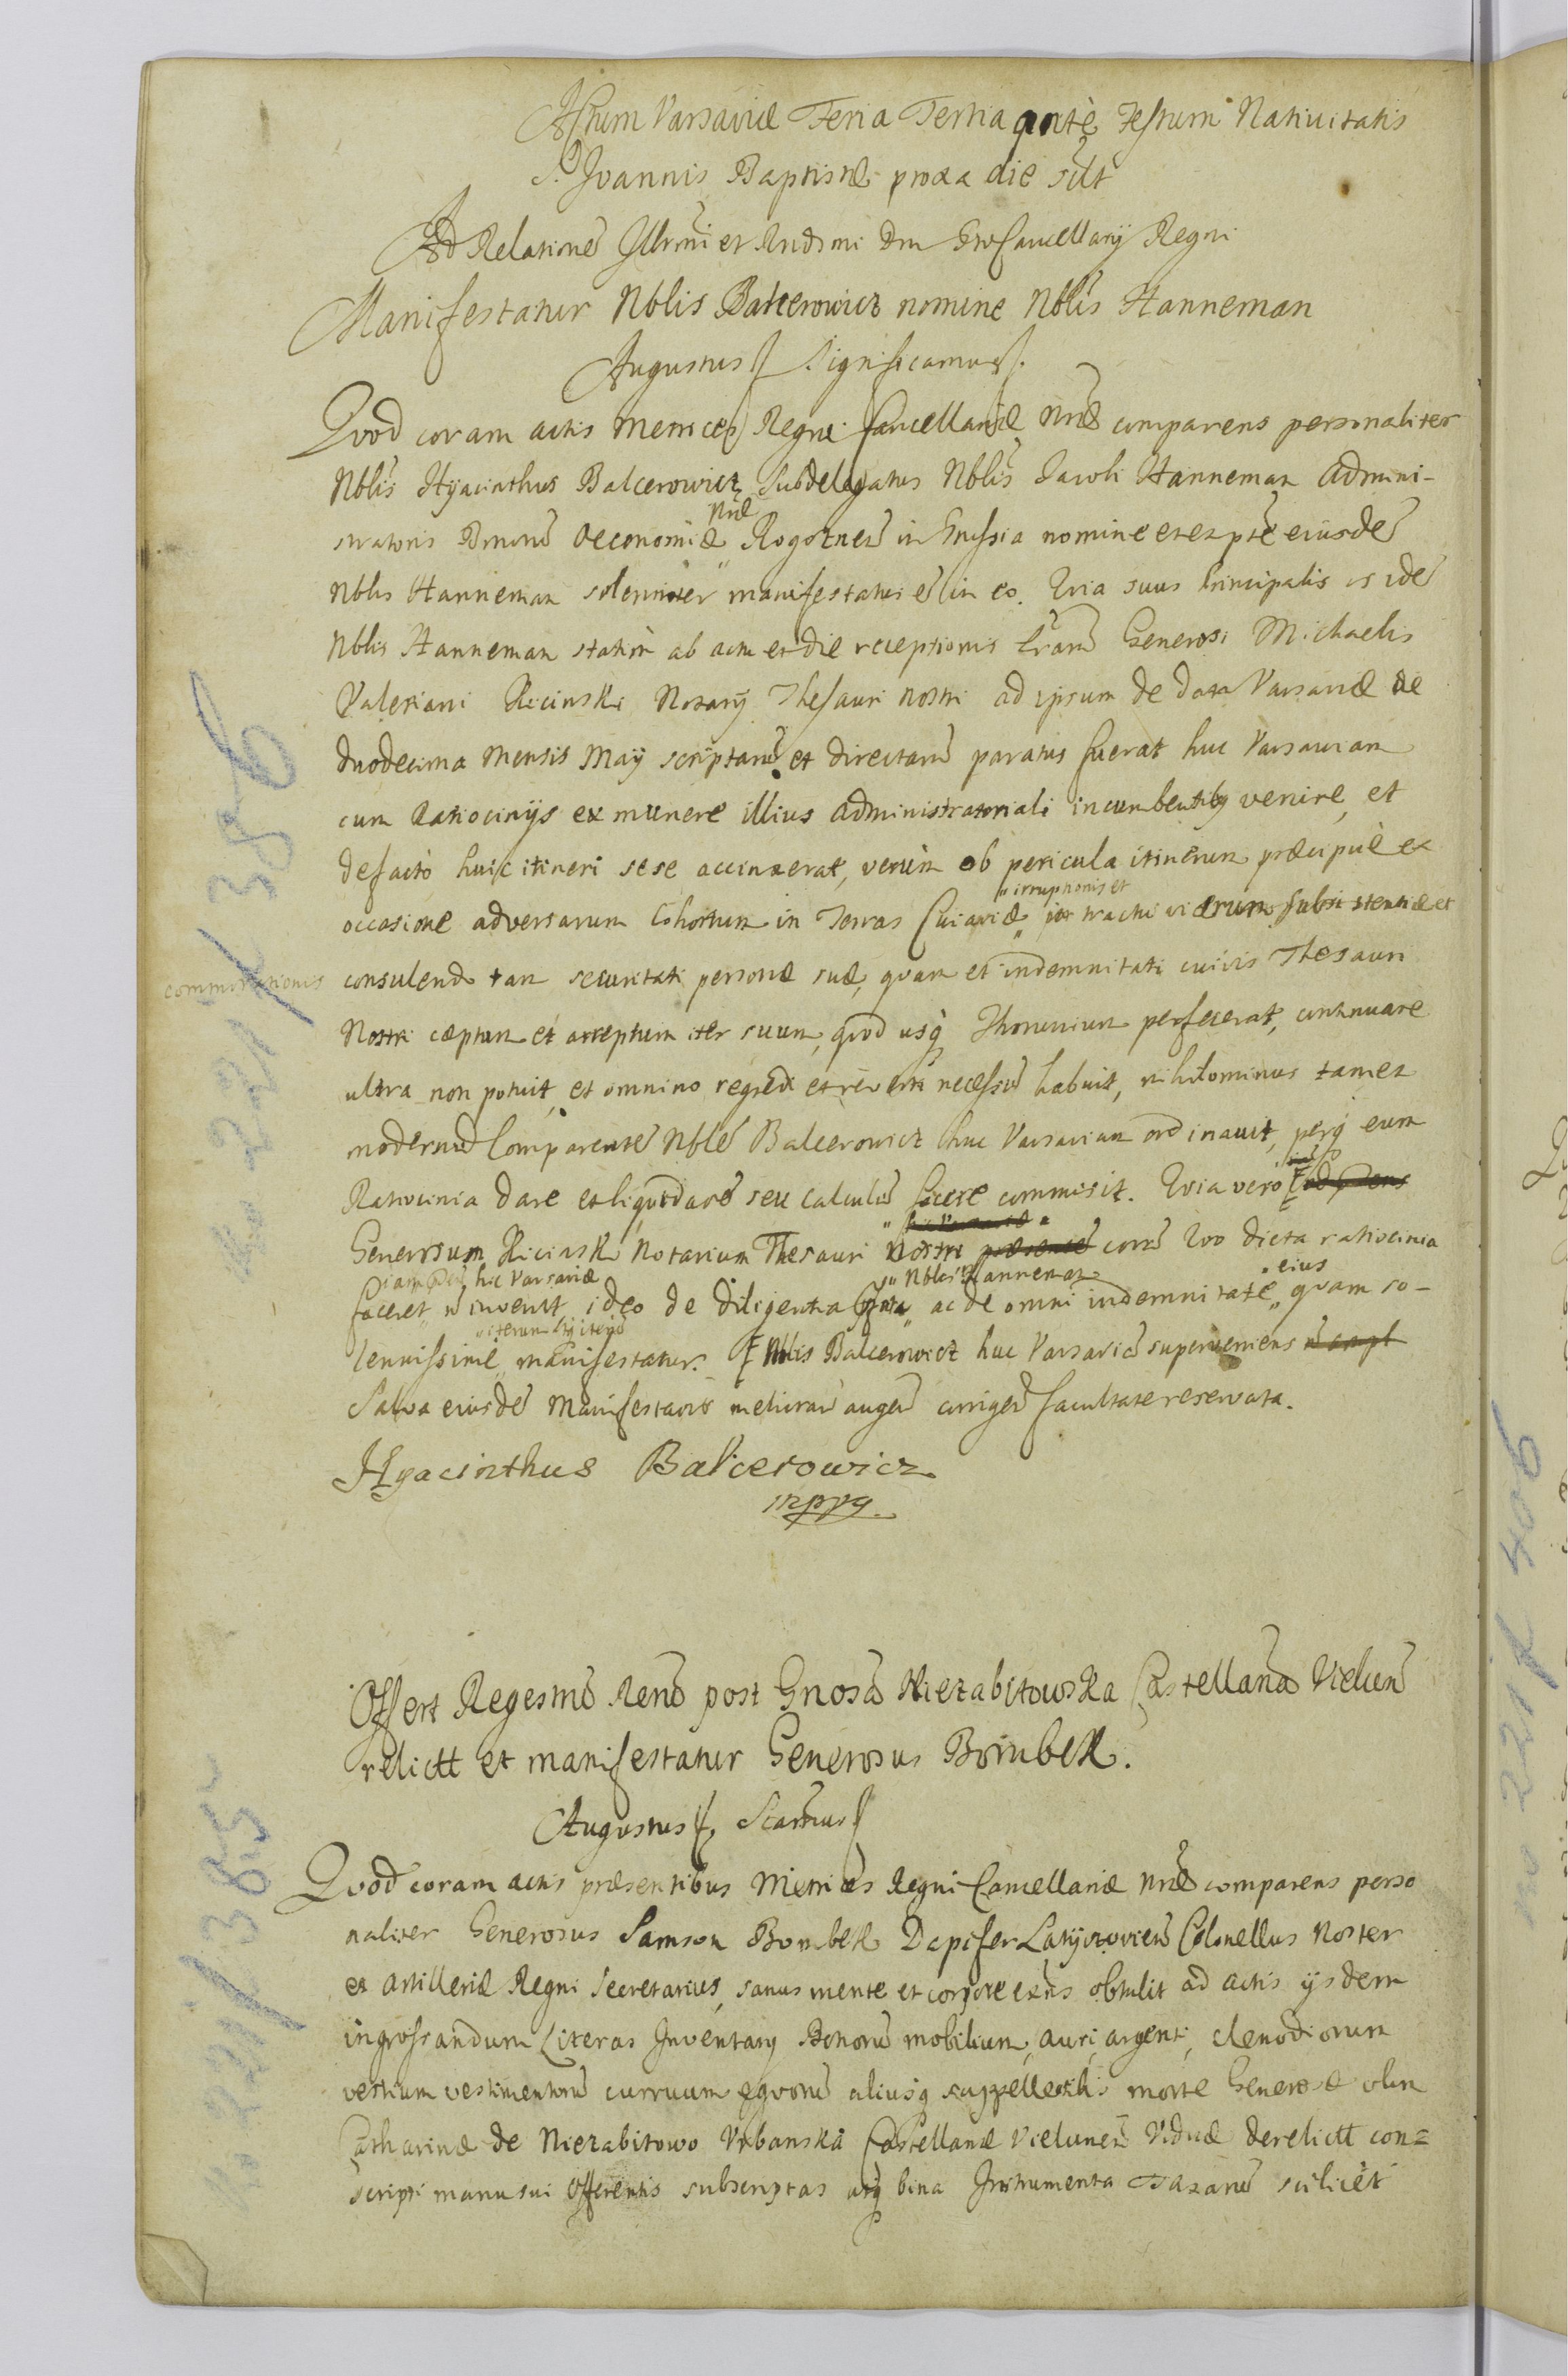 Actum Varsaviæ Feria Tertia ante Festum Nativitatis
S. Joannis Baptistæ proxa die scilt
Ad Relationē Illrmi et Rndsmi Dni ProCancellarij Regni
Manifestatur Nblis Balcerowicz nomine Nblis Hanneman
Augustus Significamus
Quod coram actis Metrices Regni Cancellariæ Nræ comparens personaliter
Nblis Hyacinthus Balcerowicz Subdelegatus Nblis Jacobi Hanneman Admini-
stratoris Bonorū Oeconomiæ Nræ Rogoznen in Prussia nomine et ex pte eiusdē
Nblis Hanneman solenniter manifestatus ē in eo. Quia suus Principalis is idē
Nblis Hanneman statim ab actu et die receptionis Lrarū Generosi Michaelis
Valeriani Kicinski Notarij Thesauri nostri ad ipsum de data Varsaviæ de
duodecima mensis Maij scriptarū et directarū paratus fuerat huc Varsaviam
cum Ratiocinijs ex munere illius Administratoriali incumbentibq venire, et
defacto huic itineri sese accinxerat, verùm ob pericula itinerum præcipuè ex
occasione adversarum Cohortum in Terras Cuiaviæ irruptionis et tractu viarum subsistentiæ et
commorationis
consulendo tam securitati personæ suæ, quam et indemnitati cuivis Thesauri
Nostri cæptum et arreptum iter suum, quod usq Thorunium perfecerat, continuare
ultra non potuit, et omnino regredi et reverti necessū habuit, nihilominus tamen
modernū Comparentē Nblē Balcerowicz huc Varsaviam ordinavit, perq eum
Ratiocinia dare et liquidare seu calculū facere commisit. Quia verò
Generosum Kicinski Notarium Thesauri Nostri præsentē coram quo dicta ratiocinia
faceret iam hic Varsaviæ ñ invenit, ideo de diligentia facta Nblis Hanneman ac de omni indemnitate eius quam so-
lennissimè iterum iterūq manifestatur. Nblis Balcerowicz huc Varsaviā superveniens
Salva eiusdē Manifestaōis meliorandi augendi corrigendi facultate reservata.
Hyacinthus Balcerowicz
mppa
Offert Regestrū Rerū post Gnosā Niezabitowska Castellanā Vielunē
relictt et manifestatur Generosus Bombek.
Augustus Scamus
Quod coram actis præsentibus Metrices Regni Cancellariæ Nræ comparens perso
naliter Generosus Samson Bombek Dapifer Latyczovien Colonellus Noster
et Artilleriæ Regni Secretarius, sanus mente et corpore exns obtulit ad actis ijsdem
ingrossandum Literas Inventarij Bonorū mobilium, auri, argenti, clenodiorum
vestium vestimentorū curruum equorū aliusq suppellectilis morte Generosæ olim
Catharinæ de Niezabitowo Urbanska Castellanæ Vielunen Viduæ derelictt con=
scripti manu sui Offerentis subscriptas atq bina Instrumenta Taxarū scilicèt
no 221 f 386
no 221 f 385
no 221 f 405